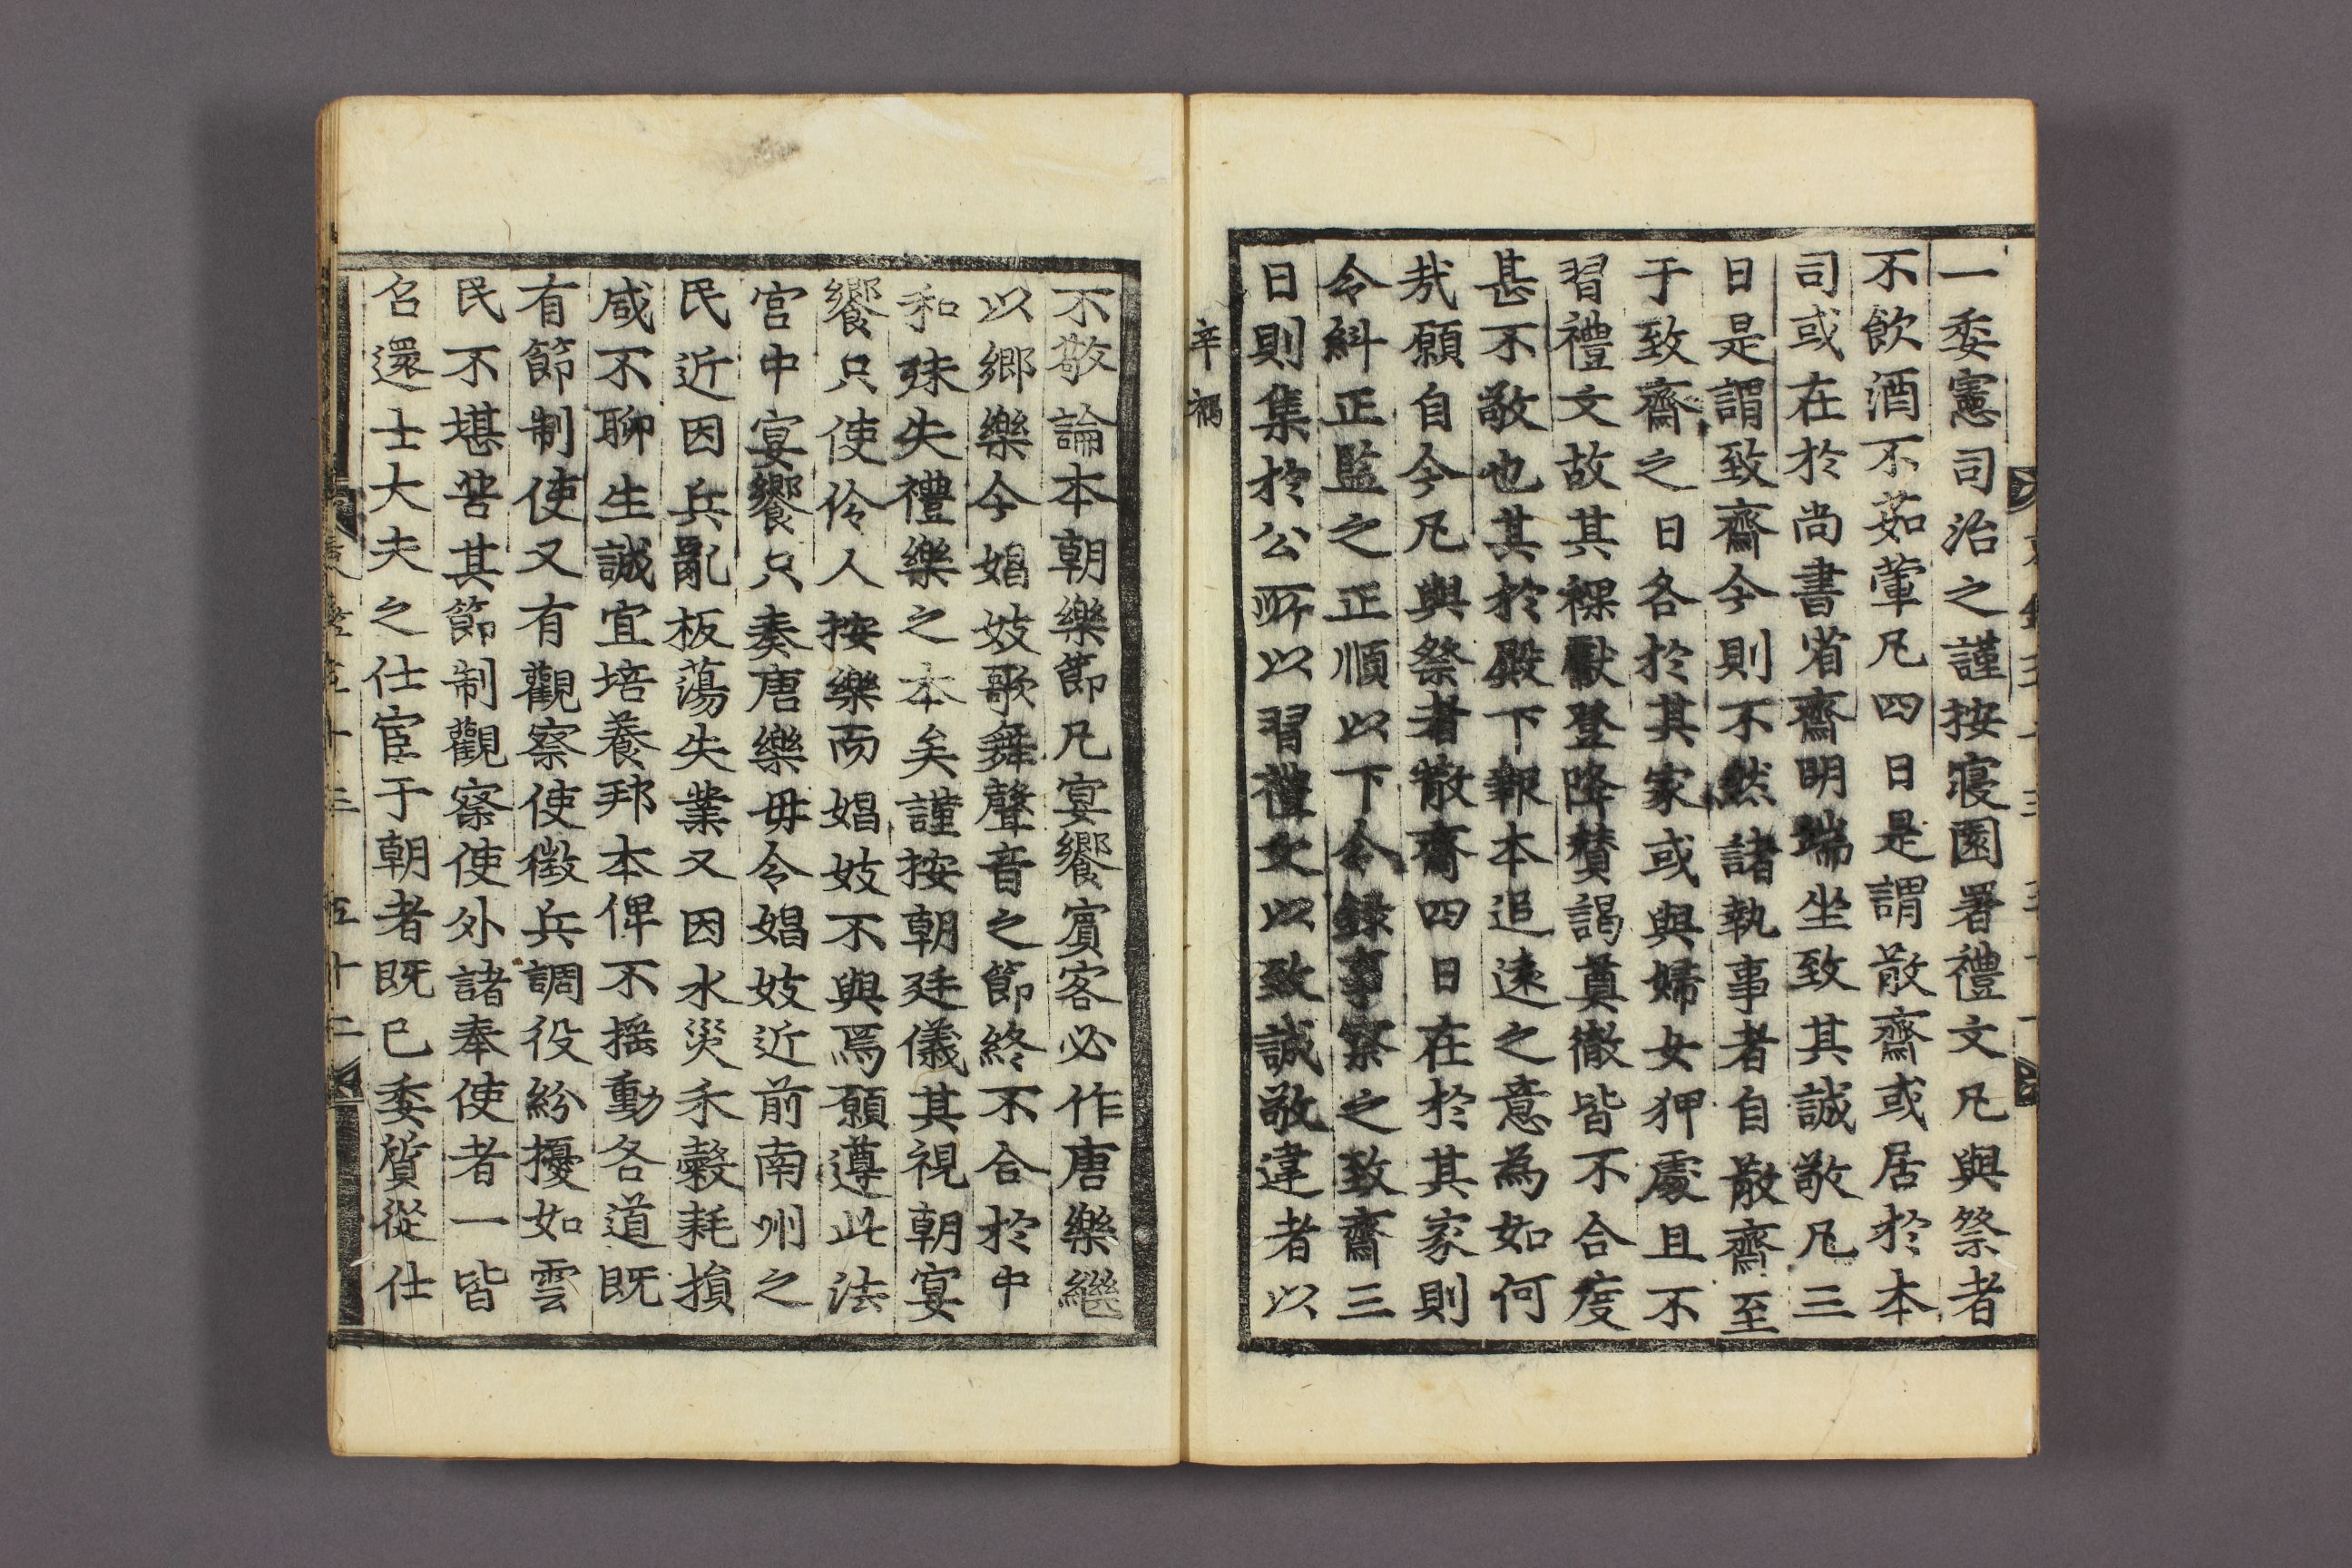 一委憲司治之謹按寢園署禮文凡與祭者
不飮酒不茹葷凡四日是謂散齋或居於本
司或在於尚書省齋明端坐致其誠敬凡三
日是謂致齋今則不然諸執事者自散齋至
于致齋之日各於其家或與婦女狎處且不
習禮文故其祼獻登降賛謁奠徹皆不合度
甚不敬也其於殿下報本追遠之意為如何
㢤願自今凡與祭者散齋四日在於其家則
令糾正監之正順以下令録事察之致齋三
日則集於公所以習禮文以致誠敬違者以
辛禑
不敬論本朝樂節凡宴饗賓客必作唐樂繼
以郷樂今娼妓歌舞聲音之節終不合於中
和殊失禮樂之本矣謹按朝廷儀其視朝宴
饗只使伶人按樂而娼妓不與焉願遵此法
宮中宴饗只奏唐樂毋令娼妓近前南州之
民近因兵亂板蕩失業又因水災禾穀耗損
咸不聊生誠宜培養邦本俾不揺動各道既
有節制使又有觀察使徵兵調役紛擾如雲
民不堪苦其節制觀察使外諸奉使者一皆
召還士大夫之仕宦于朝者既已委質從仕
五十二